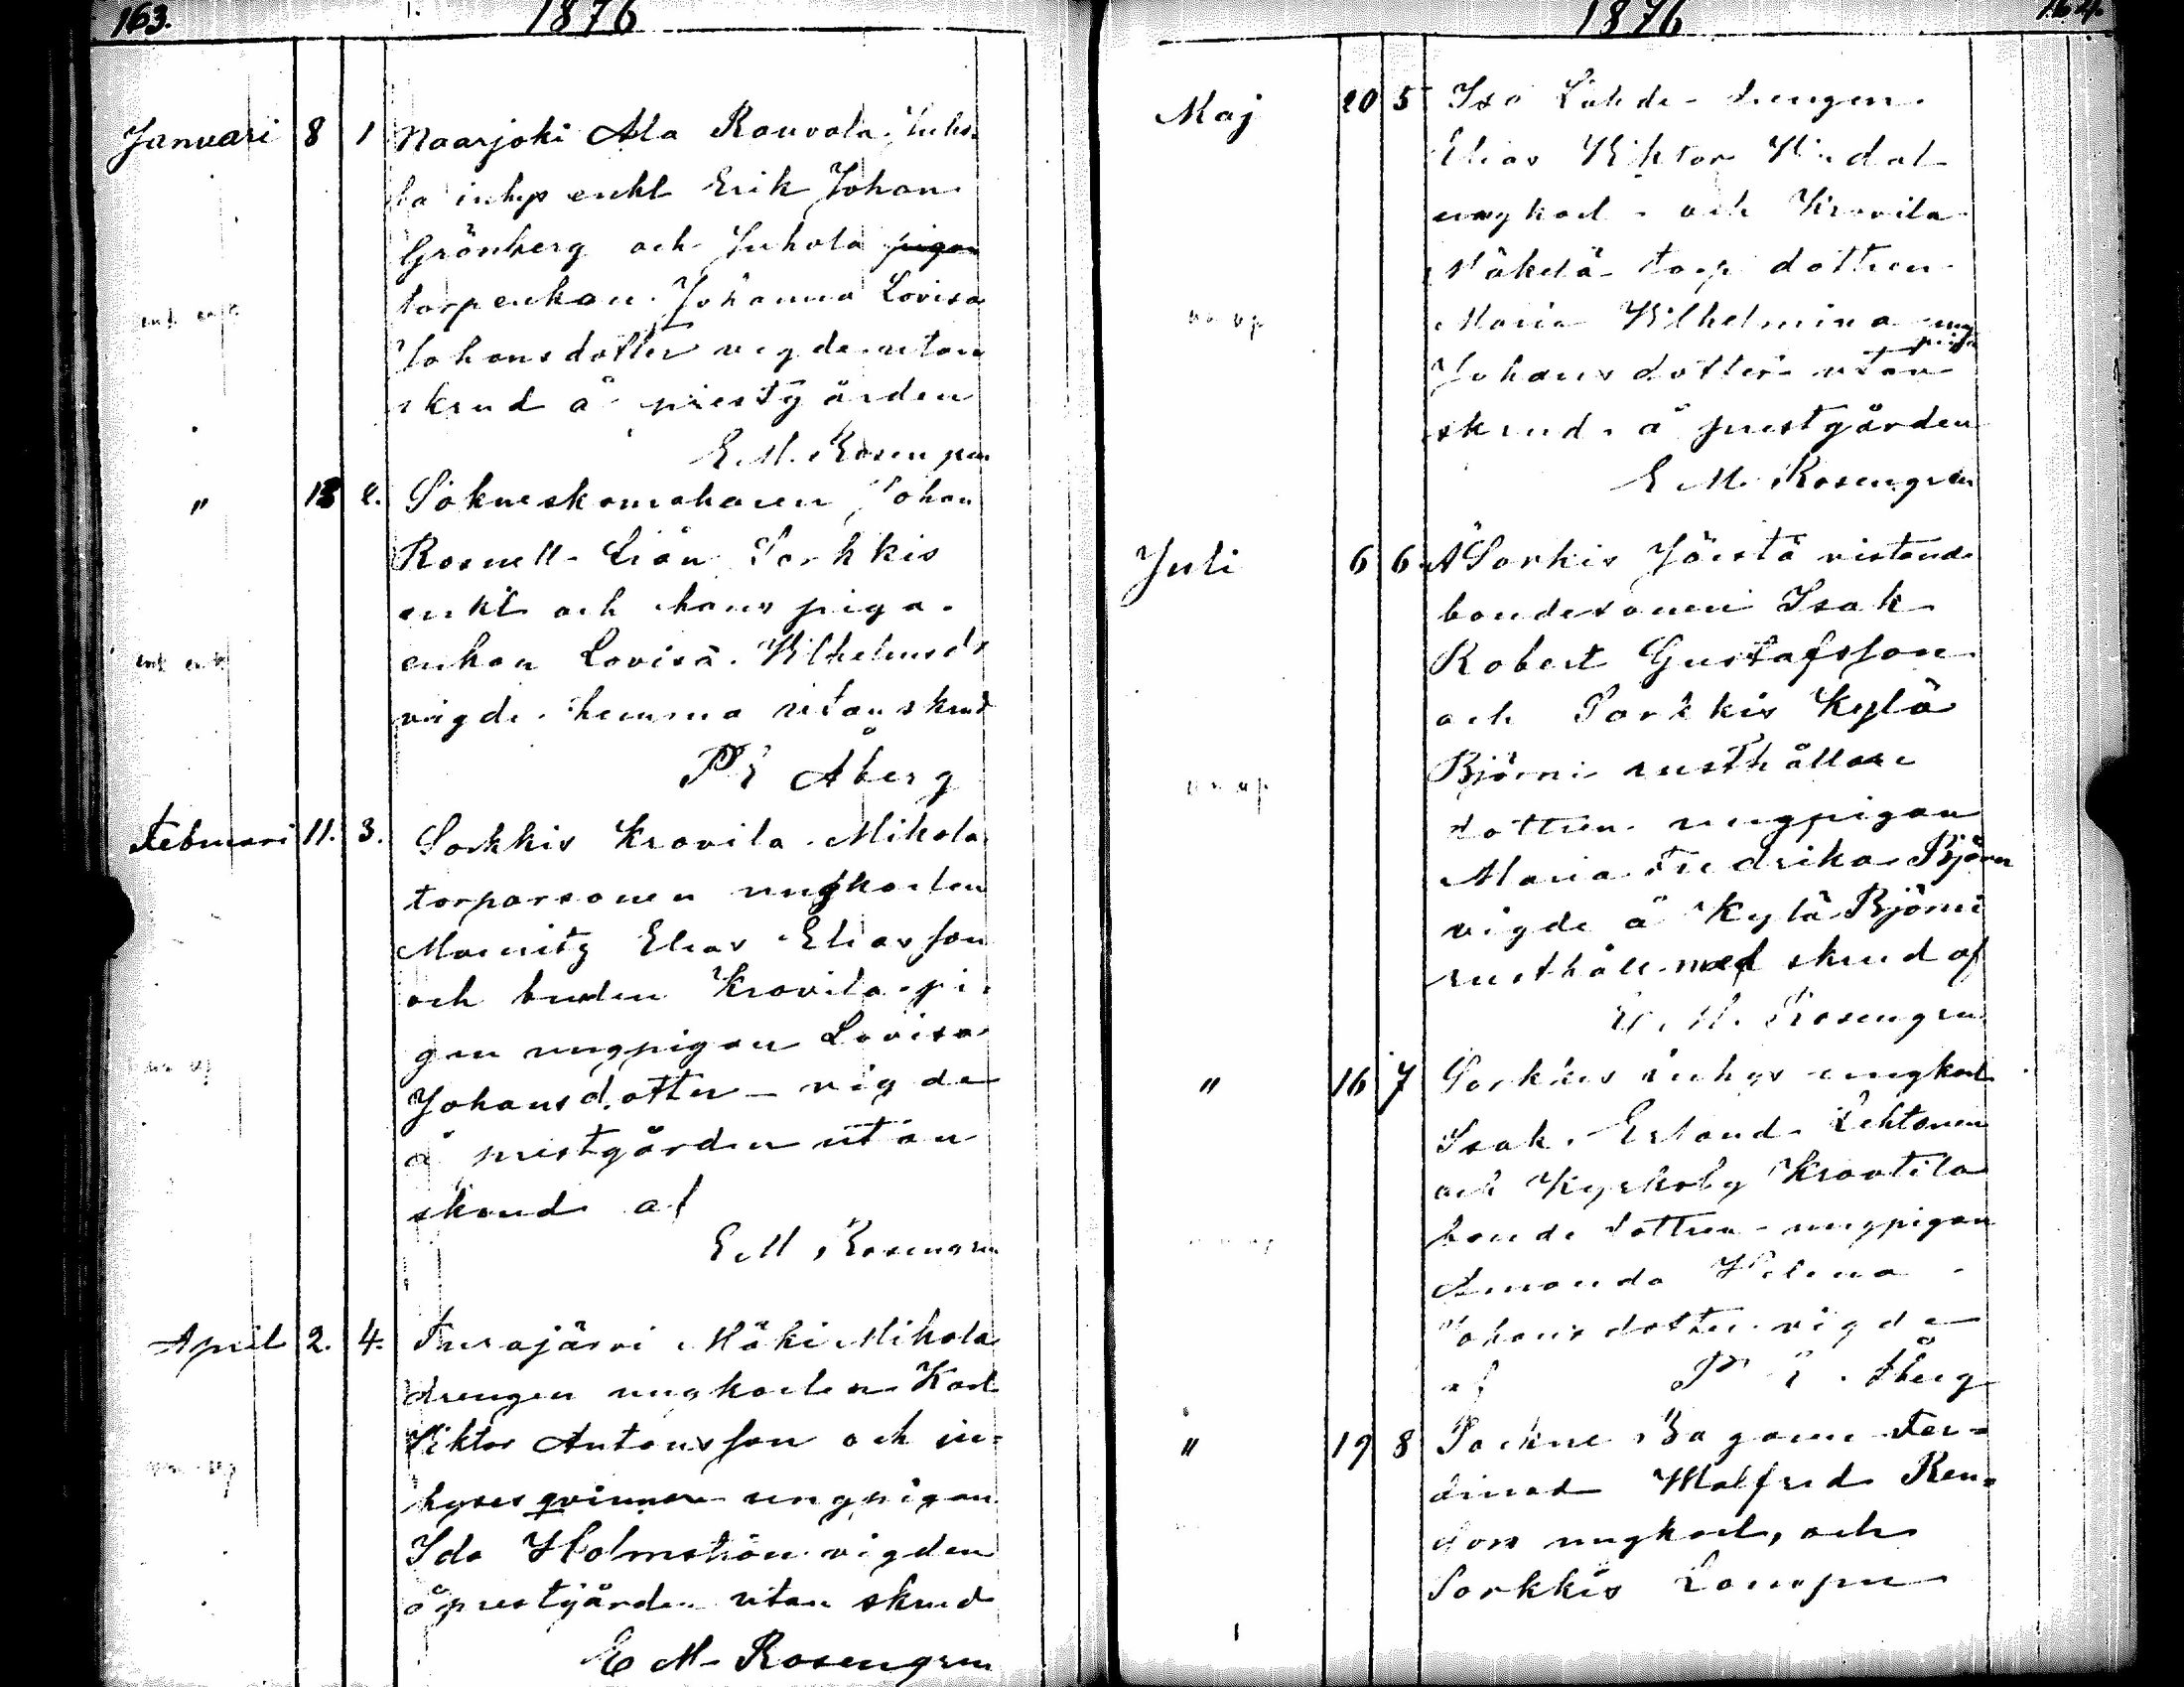 163.
1876
Januari 8 1 Naarjoki Ala Rouvola Juho-
la inhys enkl Erik Johan
Grönberg och Juhola pigan
torpenkan Johanna Lovisa
Johansdotter vigde utan
skrud å prestgården
E. M. Rosengren
" 18 2. Sokneskomakaren Johan
Rosnell Sorkkis
enkl och hans piga
enkan Lovisa Vilhelmsdr
vigde hemma utan skrud
P E Åberg
Februari 11. 3. Sorkkis Kravila Mikola
torparsonen ungkarlen
Mauritz Elias Eliasson
och Kravila pi-
gan ungpigan Lovisa
Johansdotter vigde
å prestgården utan
skrud af
E M Rosengren
April 2. 4. Turajärvi Mäki Mikola
drengen ungkarlen Karl
Viktor Antonsson och in-
hyses qvinnan ungpigan
Ida Holmström vigden
å prestgården utan skrud
E M Rosengren
1876
164.
Maj 20 5 Iso Lahde drengen
Elias Viktor
ungkarl och Kravila
Mäkelä torp dottren
Maria Vilhelmina ung
piga
Johansdotter utan
skrud å prestgården
E M Rosengren
Juli 6 6 Å Sorkis Jöistä vistande
bondesonen Isak
Robert Gustafsson
och Sorkkis Kylä
Björni rusthållare
dottren ungpigan
Maria Fredrika Björn
vigde å Kylä Björni
rusthåll med skrud af
E. M. Rosengren
" 16 7 Sorkkis inhys ungkarl
Isak Erland Lehtonen
och Kyrkoby Kravtila
bonde dottren ungpigan
Amanda Helena
Johansdotter vigde
af P E Åberg
" 19 8 Sockne Bagaren Fer-
dinad Walfrid Ren-
fors ungkarl, och
Sorkkis